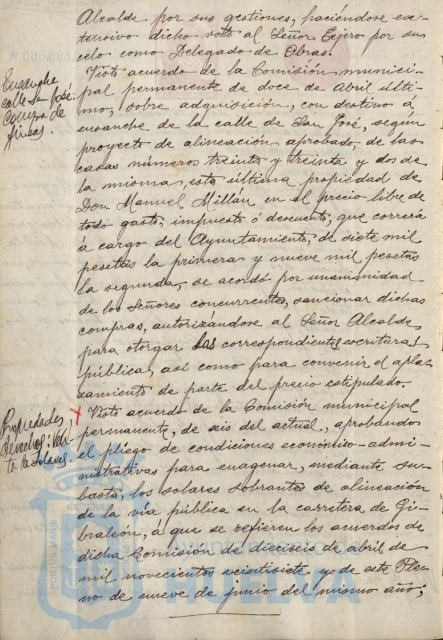 Alcalde por sus gestiones, haciéndose ex-
tensivo dicho voto al Señor Ejero por su
celo como Delegado de Obras.
Ensanche
calle San José:
Compra de
fincas.
Visto acuerdo de la Comisión munici-
pal permanente de doce de Abril últi-
mo, sobre adquisición, con destino a
ensanche de la calle de San José, según
proyecto de alineación aprobado, de las
casas números treinta y treinta y dos de
la misma, esta última propiedad de
Don Manuel Millan en el precio libre de
todo gasto, impuesto ó descuento, que correrá
á cargo del Ayuntamiento, de siete mil
pesetas la primera y nueve mil pesetas
la segunda, se acordó por unanimidad
de los Señores concurrentes, sancionar dichas
compras, autorizándose al Señor Alcalde
para otorgar las correspondientes escrituras
públicas, así como para convenir el apla-
zamiento de parte del precio estipulado.
Propiedades y
derechos: Ven-
ta de solares.
Visto acuerdo de la Comisión municipal
permanente, de seis del actual, aprobando
el pliego de condiciones económico-admi-
nistrativas para enagenar, mediante su-
basta, los solares sobrantes de alineación
de la vía pública en la carretera de Gi-
braleon, a que se refieren los acuerdos de
dicha Comisión de dieciseis de abril de
mil novecientos veintisiete y de este Ple-
no de nueve de junio del mismo año;
Ayuntamiento de
HUELVA